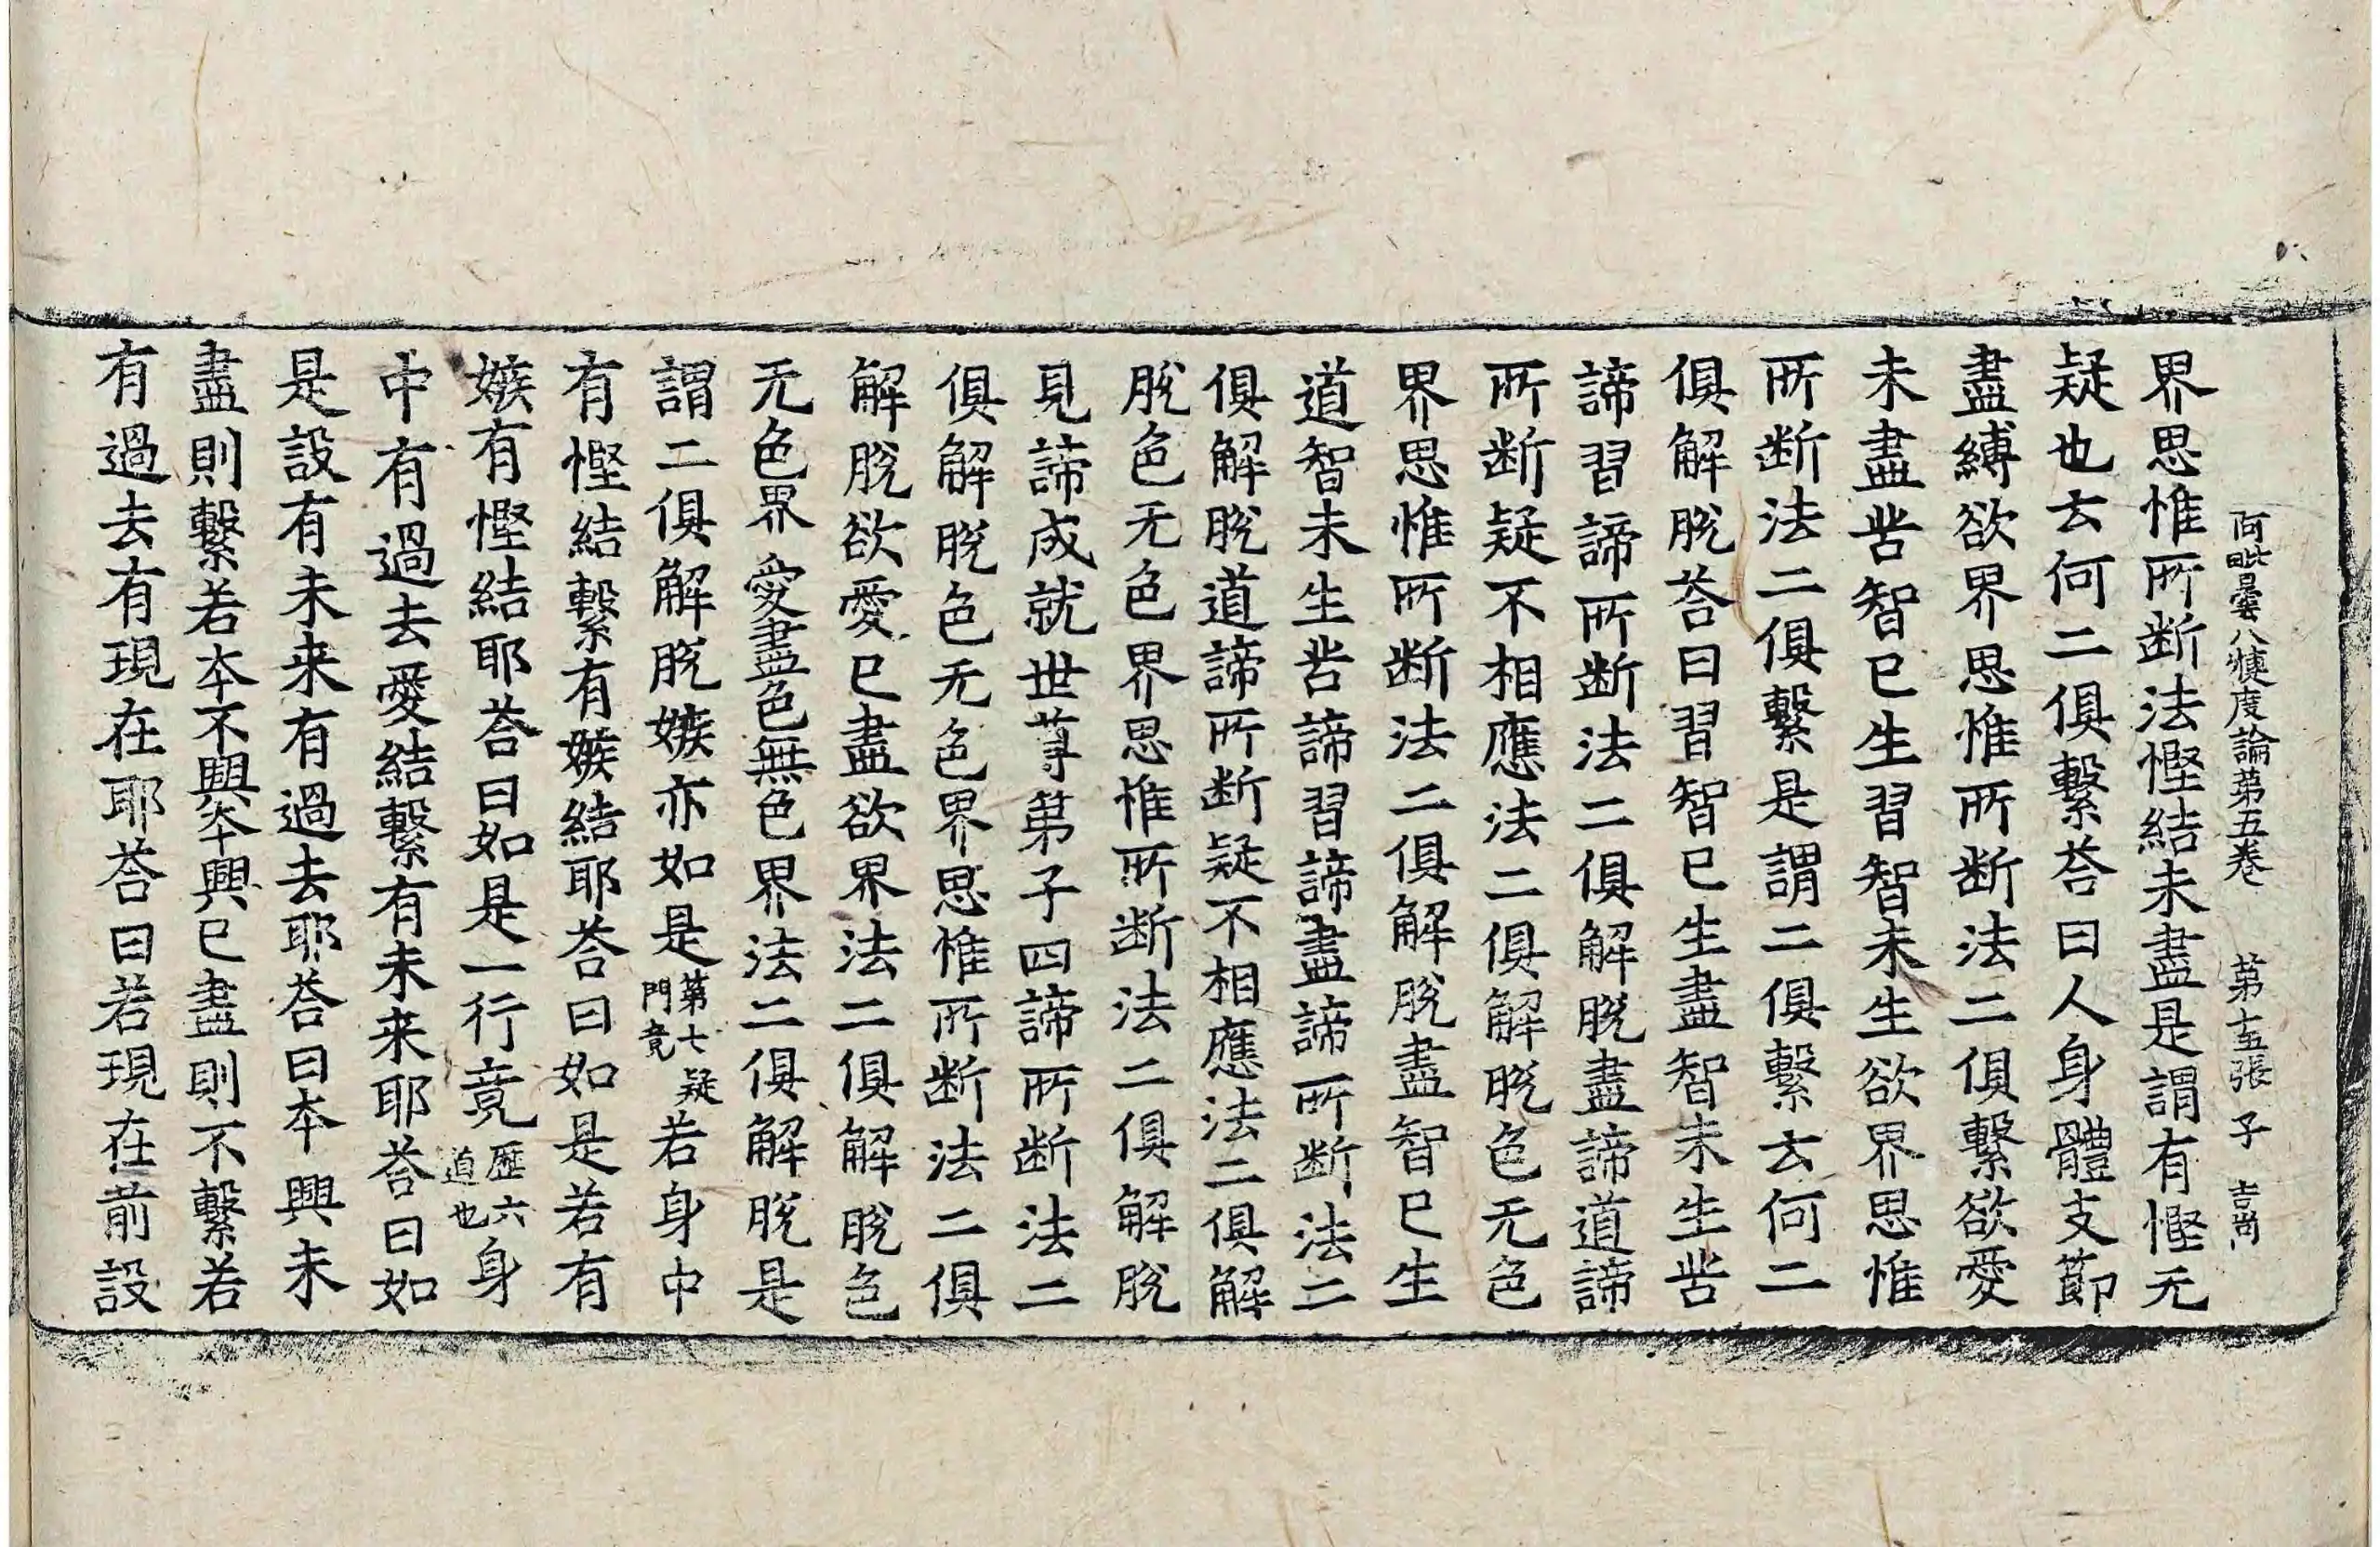 阿毗曇八犍度論第五卷　第十五張　子　吉尚
界思惟所断法慳結未盡是謂有慳无
疑也云何二俱繫荅曰人身體支節
盡縛欲界思惟所断法二俱繫欲愛
未盡苦智已生習智未生欲界思惟
所断法二俱繫是謂二俱繫云何二
俱解脫荅曰習智已生盡智未生苦
諦習諦所断法二俱解脫盡諦道諦
所断疑不相應法二俱解脫色无色
界思惟所断法二俱解脫盡智已生
道智未生苦諦習諦盡諦所断法二
俱解脫道諦所断疑不相應法二俱解
脫色无色界思惟所断法二俱解脫
見諦成就世尊弟子四諦所断法二
俱解脫色无色界思惟所断法二俱
解脫欲愛已盡欲界法二俱解脫色
无色界愛盡色無色界法二俱解脫是
謂二俱解脫嫉亦如是第七疑門竟若身中
有慳結繫有嫉結耶荅曰如是若有
嫉有慳結耶荅曰如是一行竟歷六道也身
中有過去愛結繫有未来耶荅曰如
是設有未来有過去耶荅曰本興未
盡則繫若本不興本興已盡則不繫若
有過去有現在耶荅曰若現在前設